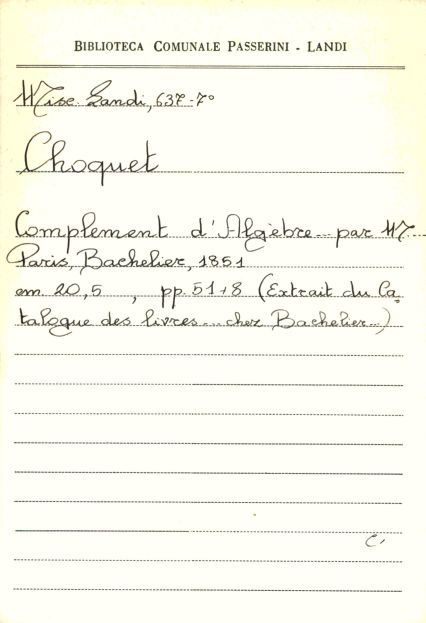 BIBLIOTECA COMUNALE PASSERINI - LANDI
Misc. Landi, 637-7°
Choquet
Complement d'Algèbre... par M...
Paris, Bachelier, 1851
cm 20,5 , pp. 51+8 (Extrait du Ca=
talogue des livres... chez Bachelier...)
C,